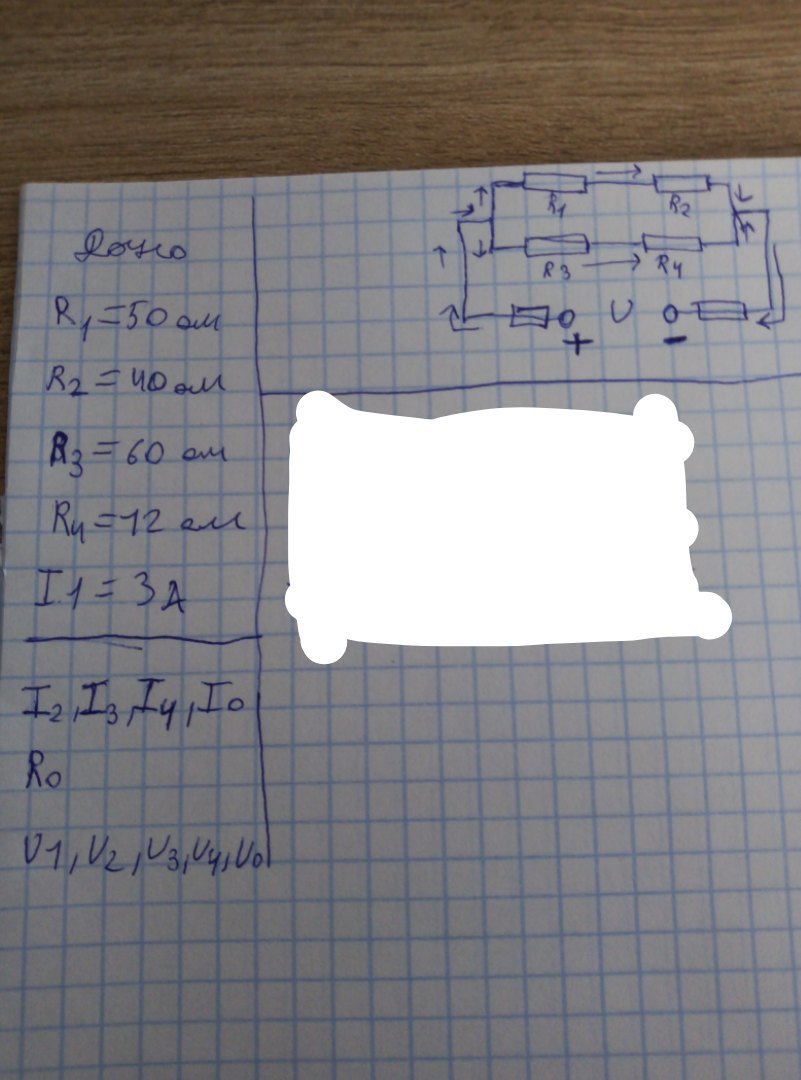 Дано
R1=50 ом
R2=40 ом
R3=60 ом
R4=12 ом
I1=3A
I2,I3,I4,I0
R0
U1,U2,U3,U4,U0
R1 R2
R3 R4
U
+ -